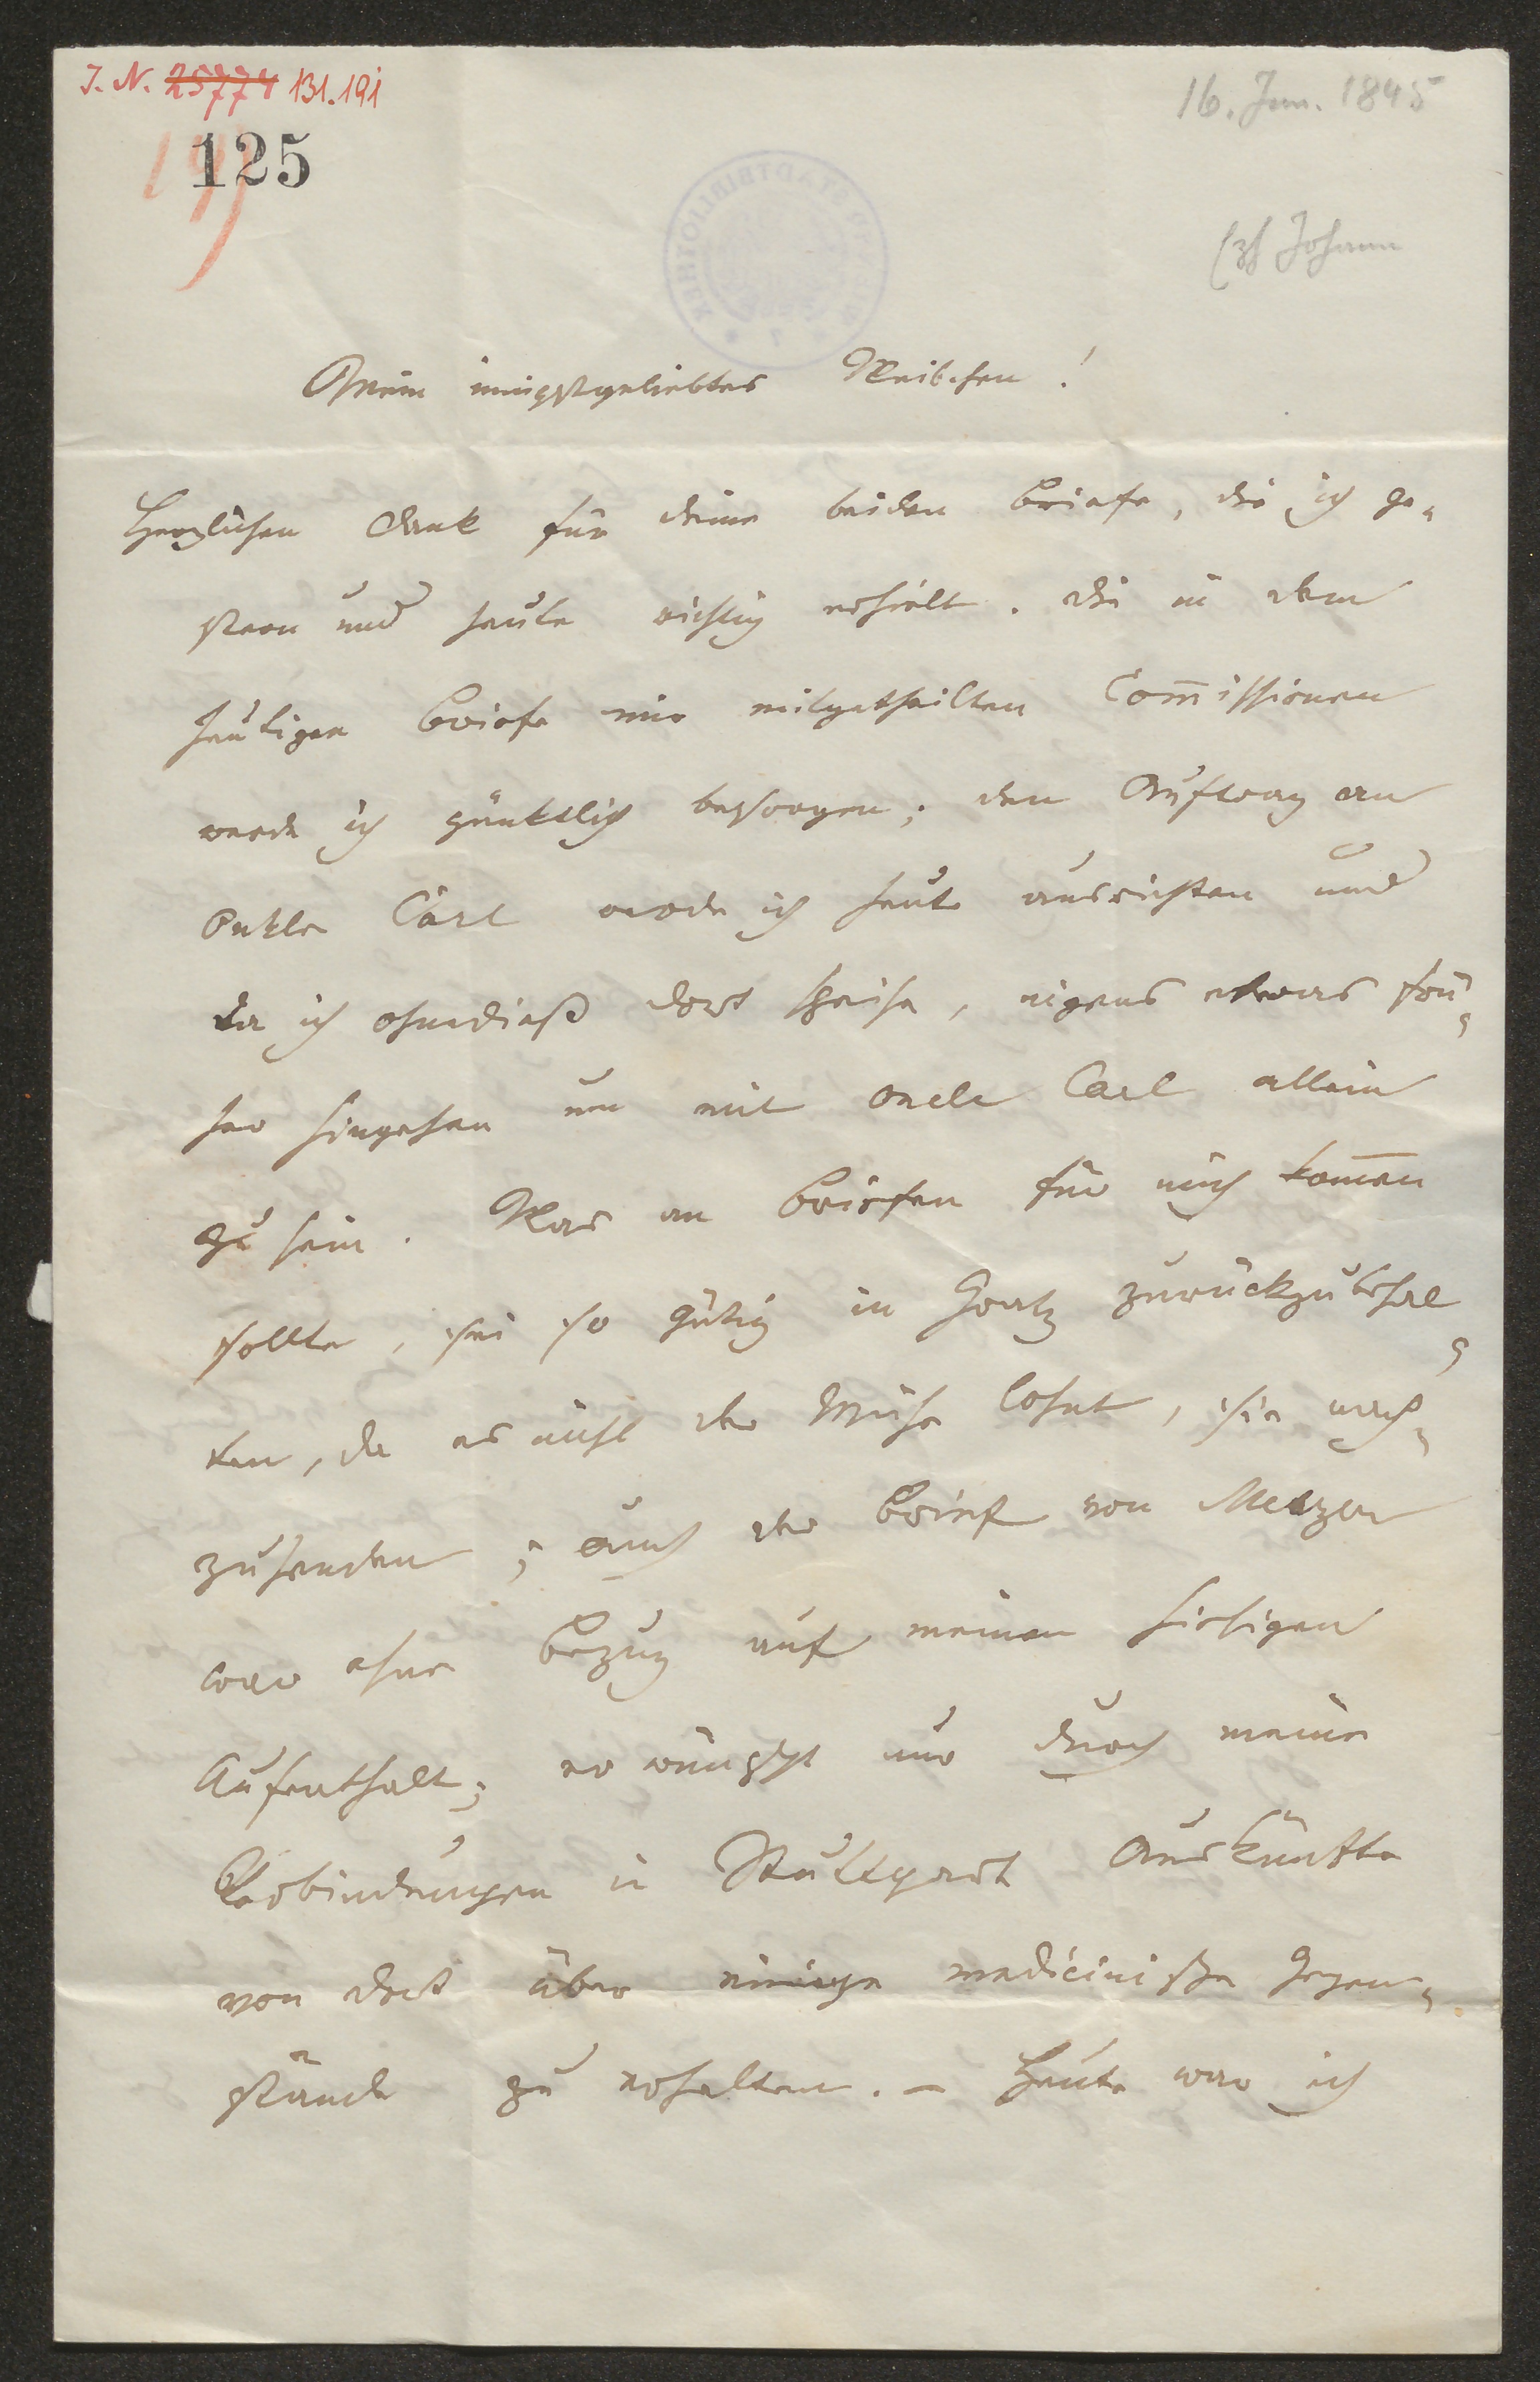 J. N. 25774 131.191
125
191
16. Jan. 1845
Ezh Johann
Mein innigstgeliebtes Weibchen!
Herzlichen Dank für deine beiden Briefe, die ich ge-
stern und heute richtig erhielt. Die in dem
heutigen Briefe mir mitgetheilten Com̅issionen
werde ich pünktlich besorgen; den Auftrag an
Onkle Carl werde ich heute ausrichten und
da ich ohnedieß dort speise, eigens etwas frü-
her hingehen um mit Oncle Carl allein
zu sein. Was an Briefen für mich kom̅en
sollte, sei so gütig in Gratz zurückzubehal-
ten, da es nicht der Mühe lohnt, sie nach-
zusenden; auch der Brief von Melzer
war ohne Bezug auf meinen hiesigen
Aufenthalt; er wünscht nur durch meine
Verbindungen in Stuttgart Auskünfte
von dort über einige medicinische Gegen-
stände zu erhalten. – Heute war ich